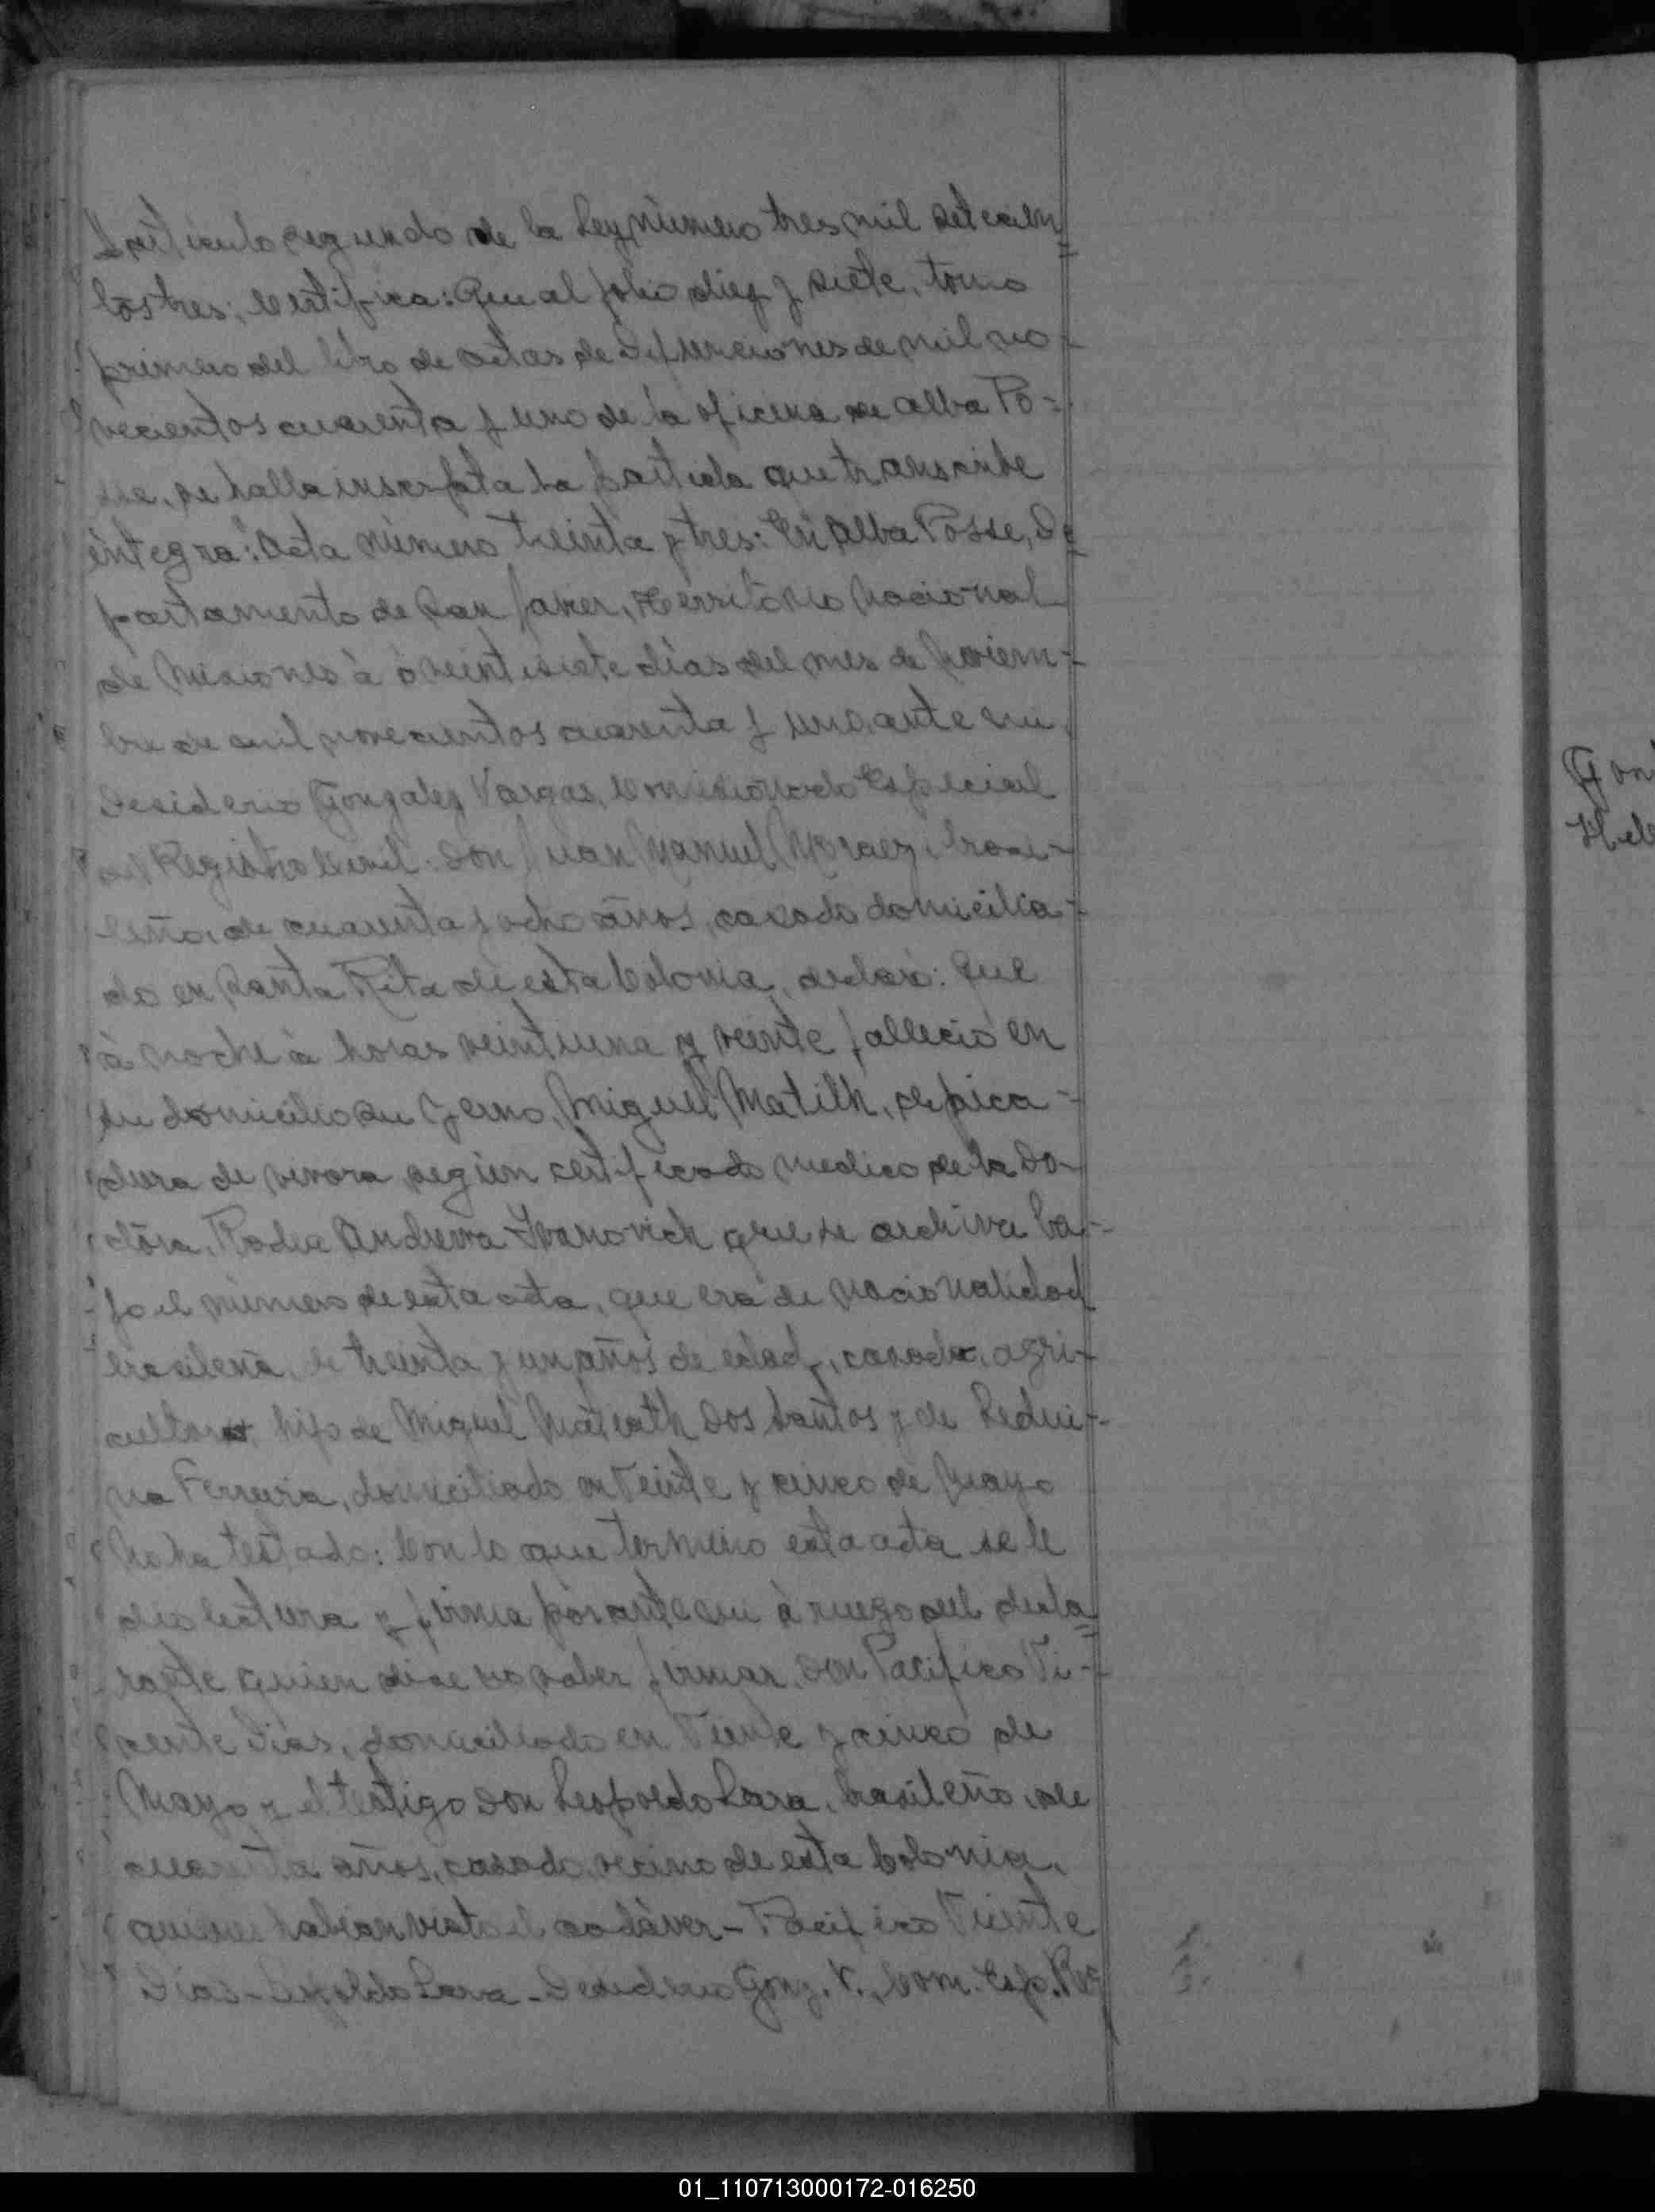 artículo segundo de la Ley, número tres mil setecien=
tos tres; Certifica: Que al folio diez y siete, tomo
primero del libro de actas de Defunciones de mil no-
vecientos cuarenta y uno de la oficina de Alba Po=
sse, se halla inscripta la partida que transcribe
íntegra: "Acta número treinta y tres: En Alba Posse, De
partamento de San Javier, Territorio Nacional
de Misiones à veintisiete días del mes de Noviem-
bre de mil novecientos cuarenta y uno, ante mi,
Desiderio Gonzalez Vargas, Comisionado Especial
del Registro Civil: Don Juan Manuel Moraez, brasi-
leño, de cuarenta y ocho años, casado domicilia-
do en Santa Rita de esta Colonia, declaró: Que
à noche à horas veintiuna y veinte falleció en
su domicilio su yerno, Miguel Matilh, de pica-
dura de vivora según certificado medico de la Do-
ctora, Andrewa Ivanovich que se archiva ba-
jo el número de esta acta, que era de nacionalidad
brasilena, de treinta y un años de edad, casado, agri-
cultor, hijo de Miguel Dos Santos y de Ledui-
na Ferreira, domiciliado en Veinte y cinco de Mayo
No ha testado: Con lo que termino esta acta se le
dio lectura y firma por ante mi à ruego del decla=
rante quien dice no saber firmar, Don Pacifico Vi-
cente Dias, domiciliado en Viente y cinco de
Mayo y el testigo Don Leopoldo Lara, brasileño, de
cuarenta años, casado, vecino de esta Colonia,
quienes habian visto el cadáver - Pacifico Vicente
Dias - Leopoldo Lara - Desiderio Gonz. V., Com. Esp. Reg
Gon
01_110713000172-016250